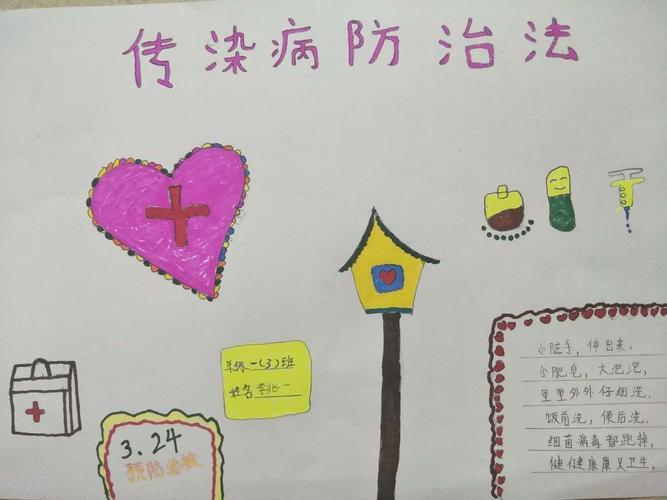 传染病防治法
年级一(3)班
姓名
3.24
预防
小脏手,伸出来.
小肥皂,大泡泡,
里里外外仔细洗.
饭前洗,便后洗.
细菌病毒都跑掉,
健健康康又卫生.